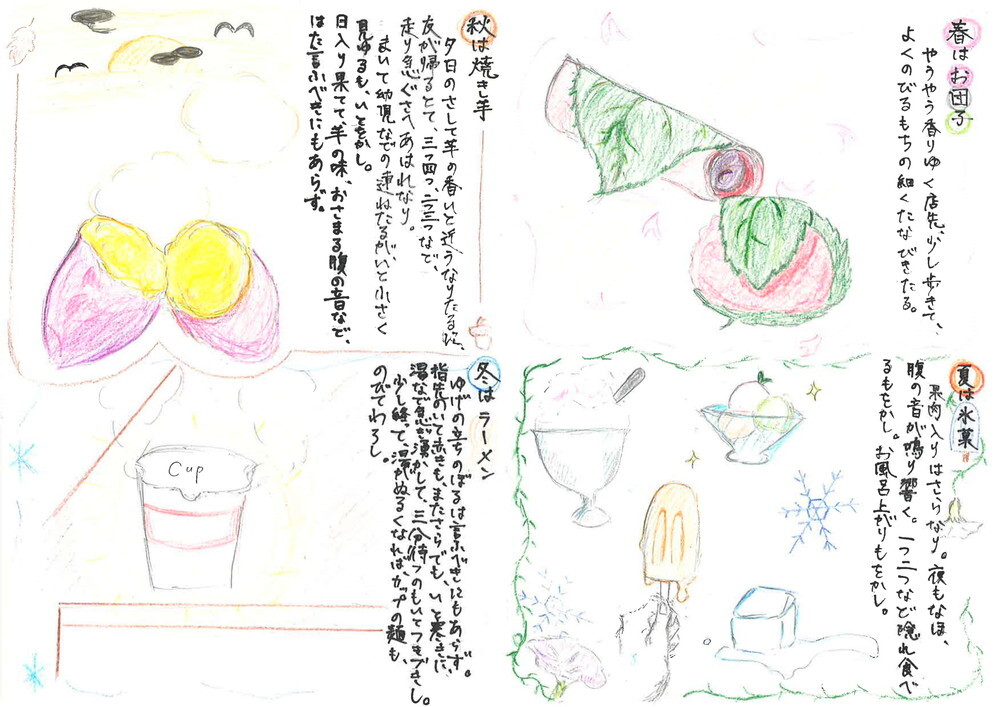 春はお団子
やうやう香りゆく店先、少し歩きて、
よくのびるもちの細くたなびきたる。
夏は氷菓
果肉入りはさらなり。夜もなほ、
腹の音が鳴り響く。一つ二つなど隠れ食べ
るもをかし。お風呂上がりもをかし。
秋は焼き芋
夕日のさして芋の香いと近うなりたるに、
友が帰るとて、三つ四つ、二つ三つなど、
走り急ぐさへあはれなり。
まいて幼児などの連ねたるがいと小さく
見ゆるも、いとをかし。
日入り果てて、芋の味、おさまる腹の音など、
はた言ふべきにもあらず。
冬はラーメン
ゆげの立ちのぼるは言ふべきにもあらず。
指先のいて赤きも、またさらでも、いと寒きに、
湯など急ぎ沸かして、三分待つのもいとつきづきし。
少し経って、湯がぬるくなれば、カップの麺も、
のびてわろし。
Cup